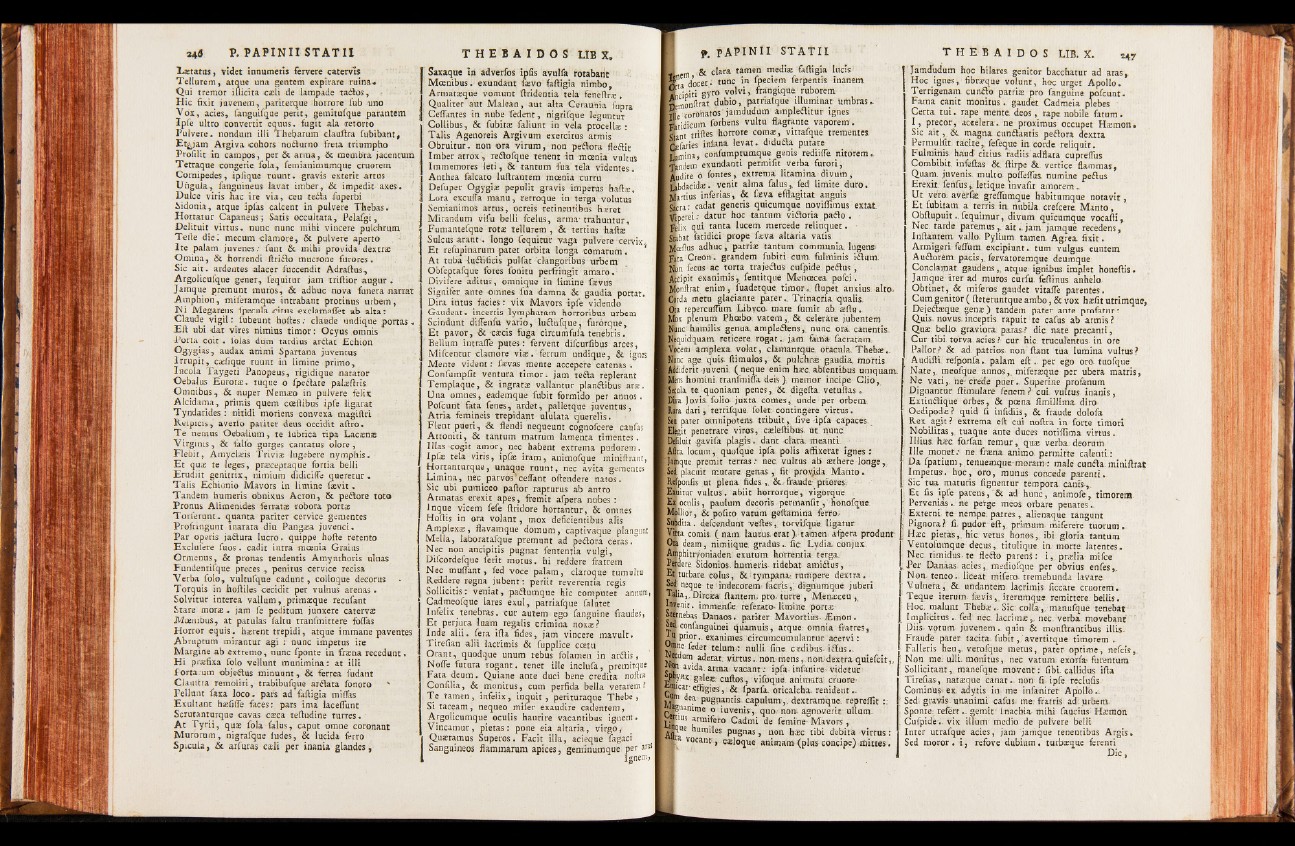 246 P. PAPINII STATII
Lætatus, videt innumeris fervere catervis
Tellurem, atque una gentem expirare ruina.
Qui tremor illicita cæli de lampade tactos,
Hic fixit juvenem, pariterque horrore ſub uno
Vox, acies, ſanguiſque perit, gemituſque parantem
Ipſe ultro convertit equus. fugit ala retorto
Pulvere. nondum illi Thebarum clauſtra ſubibant,
Et jam Argiva cohors nocturno freta triumpho
Profilit in campos, per & arma, & membra jacentum
Tetraque congerie ſola, ſemianimumque cruorem
Cornipedes, ipſique ruunt. gravis exterit artus
Ungula, ſanguineus lavat imber, & impedit axes.
Dulce viris hac ire via, ceu tecta ſuperbi
Sidonia, atque ipſas calcent in pulvere Thebas.
Hortatur Capaneus; Satis occultata, Pelaſgi,
Delituit virtus. nunc nunc mihi vincere pulchrum
Teſte die: mecum clamore, & pulvere aperto
Ite palam juvenes: ſunt & mihi provida dextræ
Omina, & horrendi ſtricto mucrone furores.
Sic ait. ardentes alacer ſuccendit Adraſtus,
Argolicuſque gener, ſequitur jam triſtior augur.
Jamque premunt muros, & adhuc nova funera narrat
Amphion, miſeramque intrabant protinus urbem,
Ni Megareus ſpecula citus exclamaſſet ab alta:
Claude vigil: ſubeunt hoſtes: claude undique portas.
Eſt ubi dat vires nimius timor: Ocyus omnis
Porta coit. ſolas dum tardius arctat Echion
Ogygias, audax animi Spartana juventus
Irrupit, cæſique ruunt in limine primo,
Incola Taygeti Panopeus, rigidique natator
Oebalus Eurotæ. tuque o ſpectate palæſtris
Omnibus, & nuper Nemæo in pulvere felix
Alcidama, primis quem cœſtibus ipſe ligarat
Tyndarides: nitidi moriens convexa magiſtri
Reſpicis, averſo pariter deus occidit aſtro.
Te nemus Oebalium, te lubrica ripa Lacænæ
Virginis, & falſo gurges cantatus olore,
Flebit, Amyclæis Triviæ lugebere nymphis.
Et quæ te leges, præceptaque fortia belli
Erudiit genitrix, nimium didiciſſe queretur.
Talis Echionio Mavors in limine ſævit.
Tandem humeris obnixus Acron, & pectore toto
Pronus Alimenides ferratæ robora portæ
Torſerunt. quanta pariter cervice gementes
Profringunt inarata diu Pangæa juvenci.
Par operis jactura lucro. quippe hoſte retento
Excluſere ſuos. cadit intra mœnia Graius
Ormenus, & pronas tendentis Amynthoris ulnas
Fundentiſque preces, penitus cervice recisa
Verba ſolo, vultuſque cadunt, colloque decorus
Torquis in hoſtiles cecidit per vulnus arenas.
Solvitur interea vallum, primæque recuſant
Stare moræ. jam ſe peditum junxere catervæ
Mœnibus, at patulas ſaltu tranſmittere foſſas
Horror equis. hærent trepidi, atque immane paventes
Abruptum mirantur agi: nunc impetus ire
Margine ab extremo, nunc ſponte in fræna recedunt.
Hi præfixa ſolo vellunt munimina: at illi
Portarum objectus minuunt, & ferrea ſudant
Clauſtra remoliri, trabibuſque arctata ſonoro
Pellunt ſaxa loco. pars ad faſtigia miſſas
Exultant hæſiſſe faces: pars ima laceſſunt
Scrutanturque cavas cæca teſtudine turres.
At Tyrii, quæ ſola ſalus, caput omne coronant
Murorum, nigraſque ſudes, & lucida ferro
Spicula, & arſuras cæli per inania glandes,
THEBAIDOS LIB X.
Saxaque in adverſos ipſis avulſa rotabant
Mœnibus. exundant ſævo faſtigia nimbo,
Armatæque vomunt ſtridentia tela feneſtræ.
Qualiter aut Malean, aut alta Ceraunia ſupra
Ceſſantes in nube ſedent, nigriſque leguntur
Collibus, & ſubitæ ſaliunt in vela procellæ:
Talis Agenoreis Argivum exercitus armis
Obruitur. non ora virum, non pectora flectit
Imber atrox, rectoſque tenent in mœnia vultus
Immemores leti, & tantum ſua tela videntes.
Anthea falcato luſtrantem mœnia curru
Deſuper Ogygiæ pepulit gravis impetus haſtæ,
Lora excuſſa manu, retroque in terga volutus
Semianimos artus, ocreis retinentibus hæret
Mirandum viſu belli ſcelus, arma trahuntur,
Fumanteſque rotæ tellurem, & tertius haſtæ
Sulcus arant. longo ſequitur vaga pulvere cervix,
Et reſupinarum patet orbita longa comarum.
At tuba luctificis pulſat clangoribus urbem
Obſeptaſque fores ſonitu perfringit amaro.
Diviſere aditus, omnique in limine ſævus
Signifer ante omnes ſua damna & gaudia portat.
Dira intus facies: vix Mavors ipſe videndo
Gaudeat. incertis lympharam horroribus urbem
Scindunt diſſenſu vario, luctuſque, furorque,
Et pavor, & cæcis fuga circumfuſa tenebris.
Bellum intraſſe putes: fervent diſcurſibus arces,
Miſcentur clamore viæ. ferrum undique, & ignes
Mente vident: ſævas mente accepere catenas.
Conſumpſit ventura timor: jam tecta replerant
Templaque, & ingratæ vallantur planctibus aræ.
Una omnes, eademque ſubit formido per annos.
Poſcunt fata ſenes, ardet, palletque juventus,
Atria femineis trepidant ululata querelis.
Flent pueri, & flendi nequeunt cognoſcere cauſas
Attoniti, & tantum matrum lamenta timentes.
Illas cogit amor, nec habent extrema pudorem.
Ipſæ tela viris, ipſæ iram, animoſque miniſtrant,
Hortanturque, unaque ruunt, nec avita gementes
Limina, nec parvos ceſſant oſtendere natos.
Sic ubi pumiceo paſtor rapturus ab antro
Armatas erexit apes, fremit aſpera nubes:
Inque vicem ſeſe ſtridore hortantur, & omnes
Hoſtis in ora volant, mox deficientibus alis
Amplexæ, flavamque domum, captivaque plangunt
Mella, laborataſque premunt ad pectora ceras.
Nec non ancipitis pugnat ſententia vulgi,
Diſcordeſque ſerit motus. hi reddere fratrem
Nec muſſant, ſed voce palam, claroque tumultu
Reddere regna jubent: periit reverentia regis
Sollicitis: veniat, pactumque hic computet annum,
Cadmeoſque lares exul, patriaſque ſalutet
Infelix tenebras. cur autem ego ſanguine fraudes,
Et perjura luam regalis crimina noxæ?
Inde alii. ſera iſta fides, jam vincere mavult.
Tireſian alii lacrimis & ſupplice cœtu
Orant, quodque unum rebus ſolamen in arctis,
Noſſe futura rogant. tenet ille incluſa, premitque
Fata deum. Quiane ante duci bene credita noſtra
Conſilia, & monitus, cum perfida bella vetarem?
Te tamen, infelix, inquit, perituraque Thebe,
Si taceam, nequeo miſer exaudire cadentem,
Argolicumque oculis haurire vacantibus ignem.
Vincamur, pietas: pone eia altaria, virgo,
Quæramus Superos. Facit illa, acieque ſagaci
Sanguineos flammarum apices, geminumque per aras
Ignem,
P. PAPINII STATII
Ignem, & clara tamen mediæ faſtigia lucis
Orta docet. tunc in ſpeciem ſerpentis inanem
Ancipiti gyro volvi, frangique ruborem
Demonſtrat dubio, patriaſque illuminat umbras.
Ille coronatos jamdudum amplectitur ignes
Fatidicum ſorbens vultu flagrante vaporem.
Stant triſtes horrore comæ, vittaſque trementes
Cæſaries inſana levat. diducta putare
Lumina, conſumptumque genis rediiſſe nitorem.
Tandem exundanti permiſit verba furori,
Audite o ſontes, extrema litamina divum,
Labdacidæ. venit alma ſalus, ſed limite duro.
Martius inferias, & ſæva efflagitat anguis
Sacra: cadat generis quicumque noviſſimus extat
Viperei: datur hoc tantum victoria pacto.
Felix qui tanta lucem mercede relinquet.
Stabat fatidici prope ſæva altaria vatis
Mœſtus adhuc, patriæ tantum communia lugens
Fata Creon. grandem ſubiti cum fulminis ictum
Non ſecus ac torta trajectus cuſpide pectus,
Accipit exanimis, ſentitque Menœcea poſci.
Monſtrat enim, ſuadetque timor. ſtupet anxius alto
Corda metu glaciante pater. Trinacria qualis
Ora repercuſſum Libyco mare ſumit ab æſtu.
Mox plenum Phœbo vatem, & celerare jubentem
Nunc humilis genua amplectens, nunc ora canentis
Nequidquam reticere rogat. jam fama ſacratam
Vocem amplexa volat, clamantque oracula Thebæ.
Nunc age quis ſtimulos, & pulchræ gaudia mortis
Addiderit juveni (neque enim hæc abſentibus umquam
Mens homini tranſmiſſa deis) memor incipe Clio,
Secula te quoniam penes, & digeſta vetuſtas.
Diva Jovis ſolio juxta comes, unde per orbem
Rara dari, terriſque ſolet contingere virtus.
Seu pater omnipotens tribuit, ſive ipſa capaces
Elegit penetrare viros, cæleſtibus ut nunc
Deſiluit gaviſa plagis. dant clara meanti
Aſtra locum, quaſque ipſa polis affixerat ignes:
Jamque premit terras: nec vultus ab æthere longe,
Sed placuit mutare genas, fit provida Manto.
Reſponſis ut plena fides, & fraude priores
Exuitur vultus. abiit horrorque, vigorque
Ex oculis, paulum decoris permanſit, honoſque
Mollior, & poſito vatum geſtamina ferro
Subdita. deſcendunt veſtes, torviſque ligatur
Vitta comis (nam laurus erat) tamen aſpera produnt
Ora deam, nimiique gradus. ſic Lydia conjux
Amphitryoniaden exutum horrentia terga
Perdere Sidonios humeris ridebat amictus,
Et turbare colus, & tympana rumpere dextra.
Sed neque te indecorem ſacris, dignumque juberi
Talia, Dircæa ſtantem pro turre, Menœceu,
Invenit. immenſæ reſerato limine portæ
Sternebas Danaos. pariter Mavortius Æmon.
Sed conſanguinei quamvis, atque omnia fratres,
Tu prior. exanimes circumcumulantur acervi:
Omne ſedet telum: nulli ſine cædibus ictus.
Necdum aderat virtus. non mens, non dextra quieſcit,
Non avida arma vacant: ipſa inſanire videtur
Sphynx galeæ cuſtos, viſoque animata cruore
Emicat effigies, & ſparſa oricalcha renident.
Cum dea pugnantis capulum, dextramque repreſſit:
Magnanime o juvenis, quo non agnoverit ullum
Certius armifero Cadmi de ſemine Mavors,
Linque humiles pugnas, non hæc tibi debita virtus:
Aſtra vocant, cæloque animam (plus concipe) mittes.
THEBAIDOS LIB. X. 247
Jamdudum hoc hilares genitor bacchatur ad aras,
Hoc ignes, fibræque volunt, hoc urget Apollo.
Terrigenam cuncto patriæ pro ſanguine poſcunt.
Fama canit monitus. gaudet Cadmeia plebes
Certa tui. rape mente deos, rape nobile fatum.
I, precor, accelera. ne proximus occupet Hæmon.
Sic ait, & magna cunctantis pectora dextra
Permulſit tacite, ſeſeque in corde reliquit.
Fulminis haud citius radiis adflata cupreſſus
Combibit infeſtas & ſtirpe & vertice flammas,
Quam juvenis multo poſſeſſus numine pectus
Erexit ſenſus, letique invaſit amorem.
Ut vero averſæ greſſumque habitumque notavit,
Et ſubitam a terris in nubila creſcere Manto,
Obſtupuit. ſequimur, divum quicumque vocaſti,
Nec tarde paremus, ait. jam jamque recedens,
Inſtantem vallo Pylium tamen Agrea fixit.
Armigeri feſſum excipiunt. tum vulgus euntem
Auctorem pacis, ſervatoremque deumque
Conclamat gaudens, atque ignibus implet honeſtis.
Jamque iter ad muros curſu feſtinus anhelo
Obtinet, & miſeros gaudet vitaſſe parentes.
Cum genitor (ſteteruntque ambo, & vox hæſit utrimque,
Dejectæque genæ) tandem pater ante profatur:
Quis novus inceptis rapuit te caſus ab armis?
Quæ bello graviora paras? dic nate precanti,
Cur tibi torva acies? cur hic truculentus in ore
Pallor? & ad patrios non ſtant tua lumina vultus?
Audiſti reſponſa. palam eſt. per ego oro tuoſque
Nate, meoſque annos, miſeræque per ubera matris,
Ne vati, ne crede puer. Superine profanum
Dignantur ſtimulare ſenem? cui vultus inanis,
Extinctique orbes, & pœna ſimillima diro
Oedipodæ? quid ſi inſidiis, & fraude doloſa
Rex agit? extrema eſt cui noſtra in ſorte timori
Nobilitas, tuaque ante duces notiſſima virtus.
Illius hæc forſan remur, quæ verba deorum
Ille monet: ne fræna animo permitte calenti:
Da ſpatium, tenuemque moram: male cuncta miniſtrat
Impetus. hoc, oro, munus concede parenti.
Sic tua maturis ſignentur tempora canis,
Et ſis ipſe parens, & ad hunc, animoſe, timorem
Pervenias. ne perge meos orbare penates.
Externi te nempe patres, alienaque tangunt
Pignora? ſi pudor eſt, primum miſerere tuorum.
Hæc pietas, hic vetus honos, ibi gloria tantum
Ventoſumque decus, tituliquе in morte latentes.
Nec timidus te flecto parens: i, prælia miſce
Per Danaas acies, medioſque per obvius enſes.
Non teneo. liceat miſero tremebunda lavare
Vulnera, & undantem lacrimis ſiccare cruorem.
Teque iterum ſævis, iterumque remittere bellis.
Hoc malunt Thebæ. Sic colla, manuſque tenebat
Implicitus. ſed nec lacrimæ, nec verba movebant
Diis votum juvenem. quin & monſtrantibus illis
Fraude patrem tacita ſubit, avertitque timorem.
Falleris heu, veroſque metus, pater optime, neſcis,
Non me ulli monitus, nec vatum exorſa furentum
Sollicitant, maneſque movent: ſibi callidus iſta
Tireſias, natæque canat. non ſi ipſe recluſis
Cominus ex adytis in me inſaniret Apollo.
Sed gravis unanimi caſus me fratris ad urbem
Sponte refert. gemit Inachia mihi ſaucius Hæmon
Cuſpide. vix illum medio de pulvere belli
Inter utraſque acies, jam jamque tenentibus Argis.
Sed moror. i, refove dubium. turbæque ferenti
Dic,